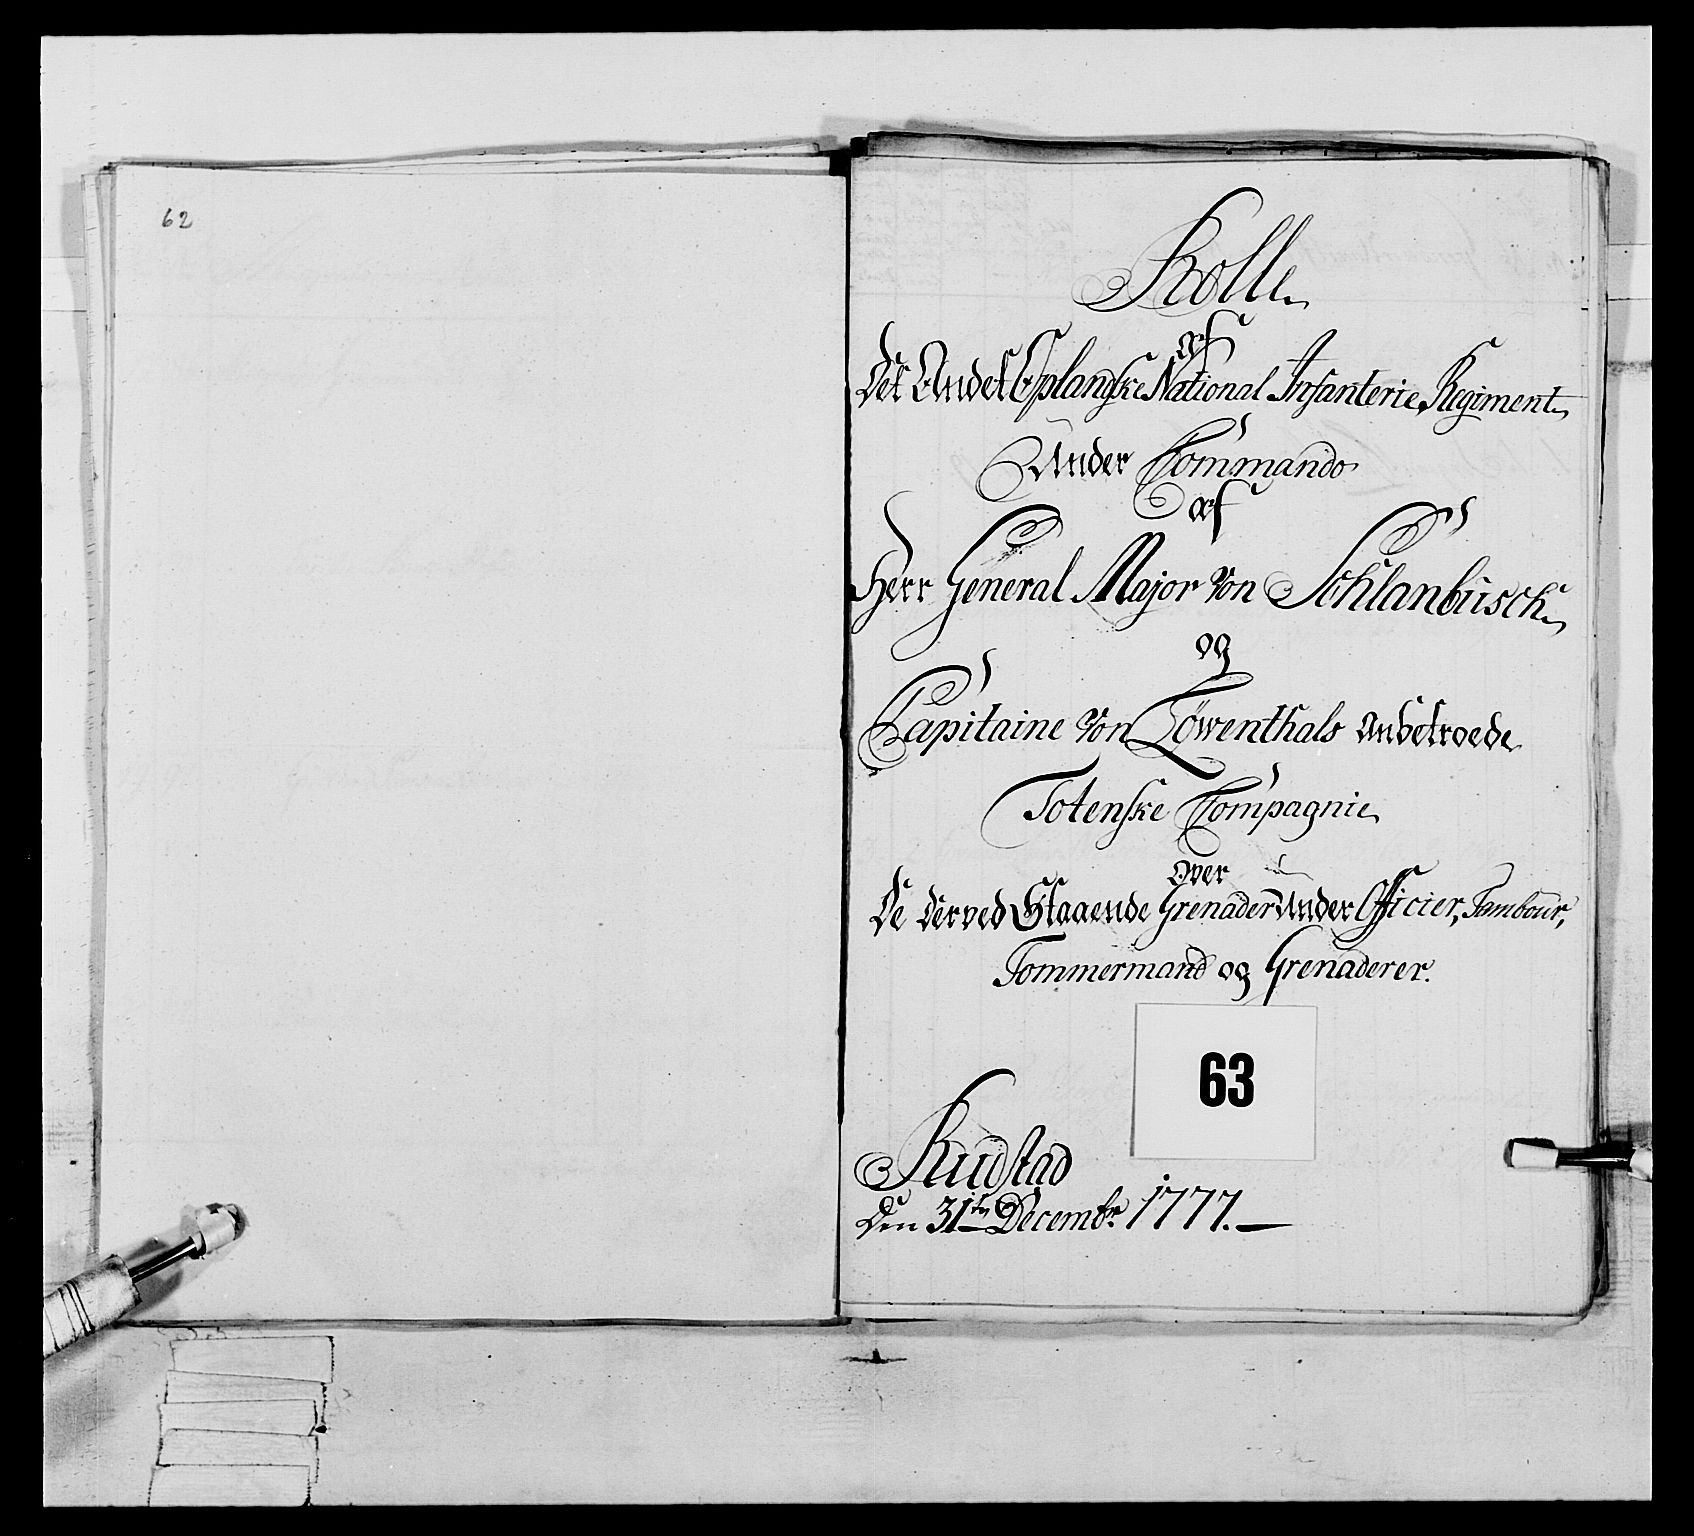 62
Rolle
af
Det Andet Oplandske National Infanterie Regiment
Under Commando
af
Herr General Major von Schlanbusch
og
Capitaine von Löwenthals Anbetroede
Totenske Compagnie
over
De derved Staaende Grenader Under Officier, Tambour,
Tømmermand og Grenaderer.
63
Rudstad
Den 31te Decembr 1777.